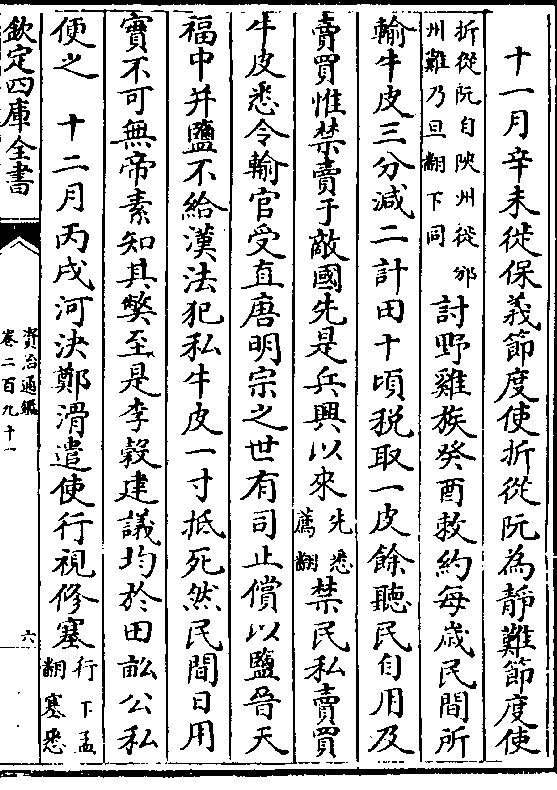 十一月辛未徙保義節度使折從阮為靜難節度使
折從阮自陜州從邠州難乃旦翻下同討野雞族癸酉敕約每歲民間所
輸牛皮三分減二計田十頃税取一皮餘聽民自用及
賣買惟禁賣于敵國先是兵興以來先悉薦翻禁民私賣買
牛皮悉令輸官受直唐明宗之世有司止償以鹽晉天
福中并鹽不給漢法犯私牛皮一寸抵死然民間日用
實不可無帝素知其弊至是李穀建議均於田畝公私
便之 十二月丙戌河決鄭滑遣使行視修塞行下孟翻塞悉
欽定四庫全書
資治通鑑
卷二百九十一
六